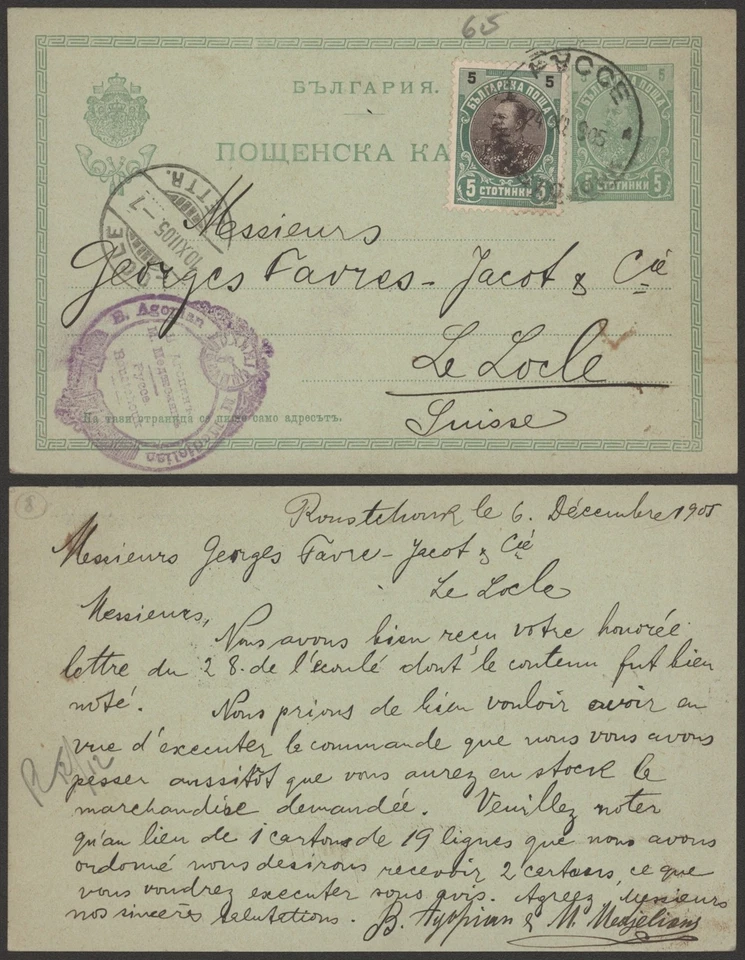 65
БЪЛГАРИЯ.
ПОЩЕНСКА КА
5 5
БЪЛГАРСКА ПОЩА
5 СТОТИНКИ 5
5
ПОЩА
5 СТОТИНКИ 5
РУССЕ
LOCLE
10.XII.05.-7
Messieurs
Georges Favres-Jacot & Cie
Le Locle
Suisse
B. Agopian
Руссе
На тази страница се пише само адресътъ.
8
Roustchouk le 6. Décembre 1905
Messieurs Georges Favre-Jacot & Cie
Le Locle
Messieurs,
Nous avons bien reçu votre honorée
lettre du 28. de l'écoulé dont le contenu fut bien
noté. Nous prions de bien vouloir avoir en
vue d'executer le commande que nous vous avons
passer aussitôt que vous aurez en stock le
marchandise demandée. Veuillez noter
qu'au lieu de 1 cartons de 19 lignes que nous avons
ordonné nous desirons recevoir 2 cartons, ce que
vous voudrez executer sans avis. Agréez, Messieurs
nos sincères salutations. B. Agopian & M. Medjelians